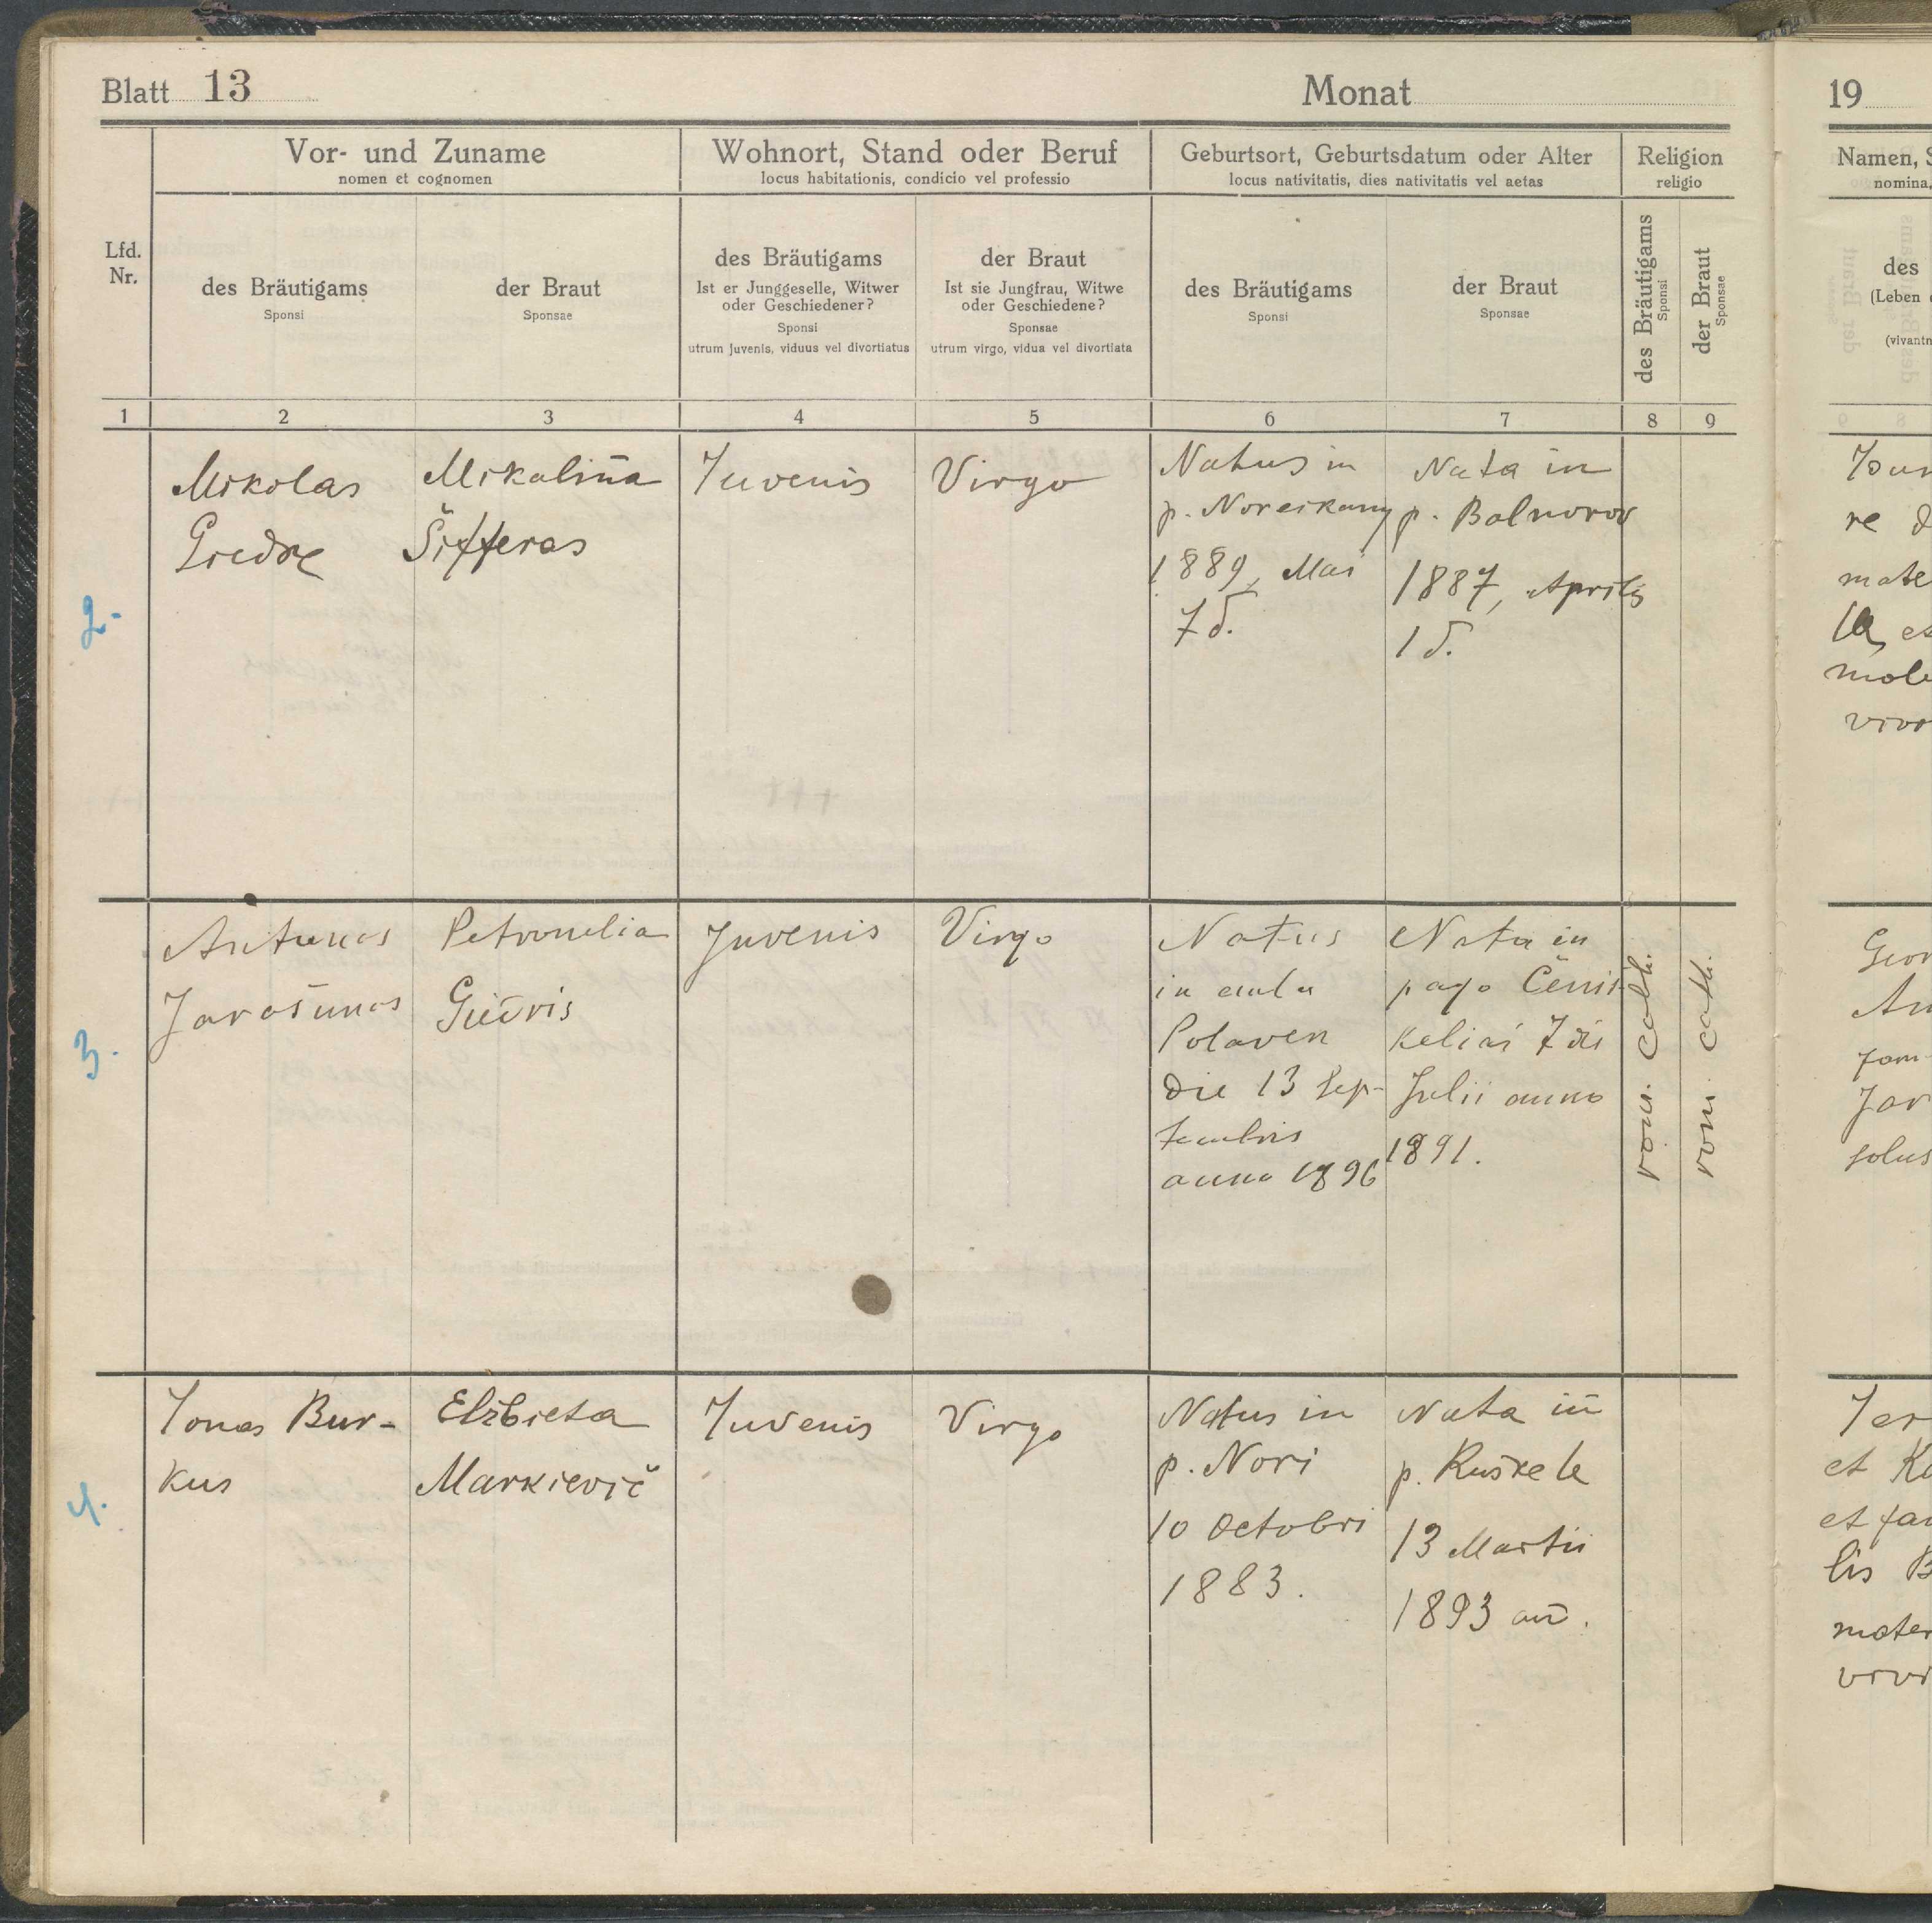 Blatt 13
Monat
19
Vor- und Zuname
nomen et cognomen
Wohnort, Stand oder Beruf
locus habitationis, condicio vel professio
Geburtsort, Geburtsdatum oder Alter
locus nativitatis, dies nativitatis vel aetas
Religion
religio
Namen, S
nomina,
Lfd.
Nr.
des Bräutigams
Sponsi
der Braut
Sponsae
des Bräutigams
Ist er Junggeselle, Witwer
oder Geschiedener?
Sponsi
utrum juvenis, viduus vel divortiatus
der Braut
Ist sie Jungfrau, Witwe
oder Geschiedene?
Sponsae
utrum virgo, vidua vel divortiata
des Bräutigams
Sponsi
der Braut
Sponsae
des Bräutigams
Sponsi
der Braut
Sponsae
des
(Leben
(vivant
1 2 3 4 5 6 7 8 9
2.
Mikolas
Giedre
Mikalina
Šifferas
Juvenis
Virgo
Natus in
p. Noreikany
1889, Mai
7 d.
Nata in
p. Balnorov
1887, Aprilis
1 d.
re
mate
vivi
3.
Antunas
Jarašunas
Petronelia
Giedris
Juvenis
Virgo
Natus
in aula
Polaven
die 13 Sep-
tembris
anno 1896
Nata in
pago Čenis-
keliai 7 di
Julii anno
1891.
rom. cath.
rom. cath.
Geor
An
fam
Jar
solus
4.
Jonas Bur-
kus
Elžbieta
Markievič
Juvenis
Virgo
Natus in
p. Nori
10 Octobri
1883.
Nata in
p. Kuškele
13 Martii
1893 an.
Jer
et Ka
et fam
lis B
mater
vivi